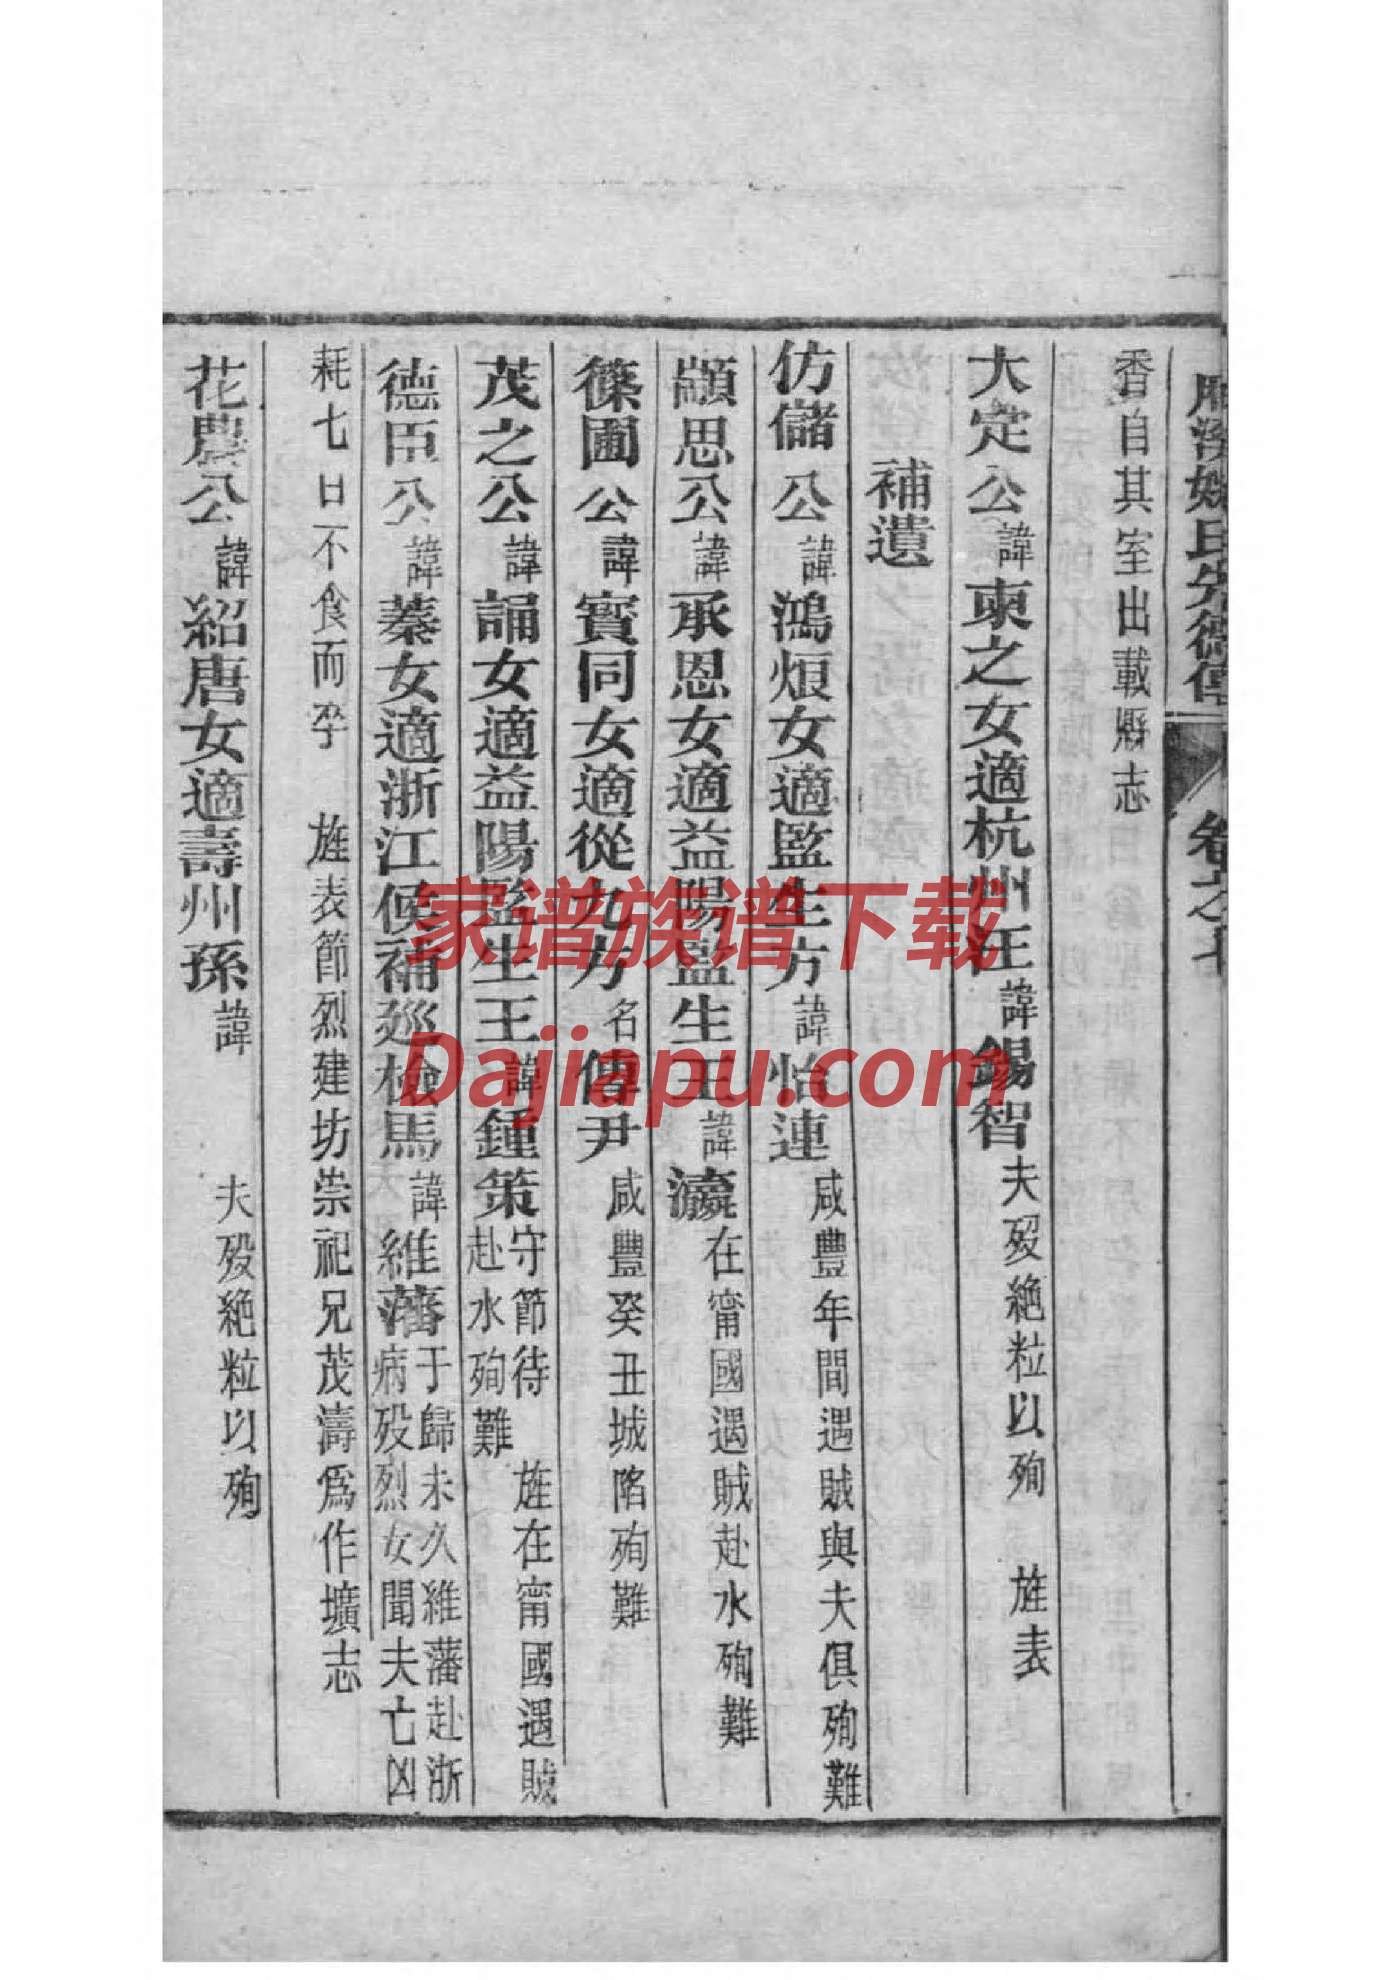 卷之七
香自其室出載縣志
大定公諱東之女適杭州汪諱錫智夫歿絶粒以殉 旌表
補遺
仿儲公諱鴻烺女適監生方諱怡連咸豐年間遇賊與夫俱殉難
顓思公諱承恩女適益陽監生王諱瀛在甯國遇賊赴水殉難
篠圃公諱寳同女適從九方名傳尹咸豐癸丑城陷殉難
茂之公諱誦女適益陽監生王諱鍾策守節待 旌在甯國遇賊赴水殉難
德臣公諱蓁女適浙江候補廵檢馬諱維藩于歸未久維藩赴浙病歿烈女聞夫亡凶
耗七日不食而卒 旌表節烈建坊崇祀兄茂濤爲作壙志
花農公諱紹唐女適壽州孫諱 夫歿絶粒以殉
家谱族谱下载
Dajiapu.com